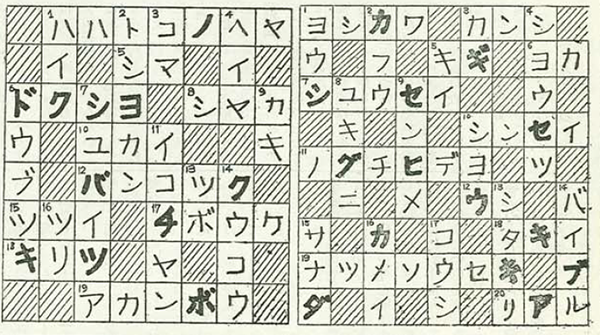 1ハハ2ト3コノ4ヘヤ
イ 5シマ イ
6ドク7シヨ 8シヤ9カ
ウ 10ユカ11イ キ
ブ 12バンコ13ツ14ク
15ツ16ツイ 17チボウケ
18キリツ ヤ コ
19アカンボウ
1ヨシ2カワ 3カン4シ
ウ フ 5キギ 6ヨカ
7シ8ユウ9セイ ウ
キ ン 10シンセイ
11ノグチヒデヨ ツ
ニ メ 12ウ13シ 14バ
15サ 16カ 17コ 18タキイ
19ナツメソウセキ ブ
ダ イ シ 20リアル